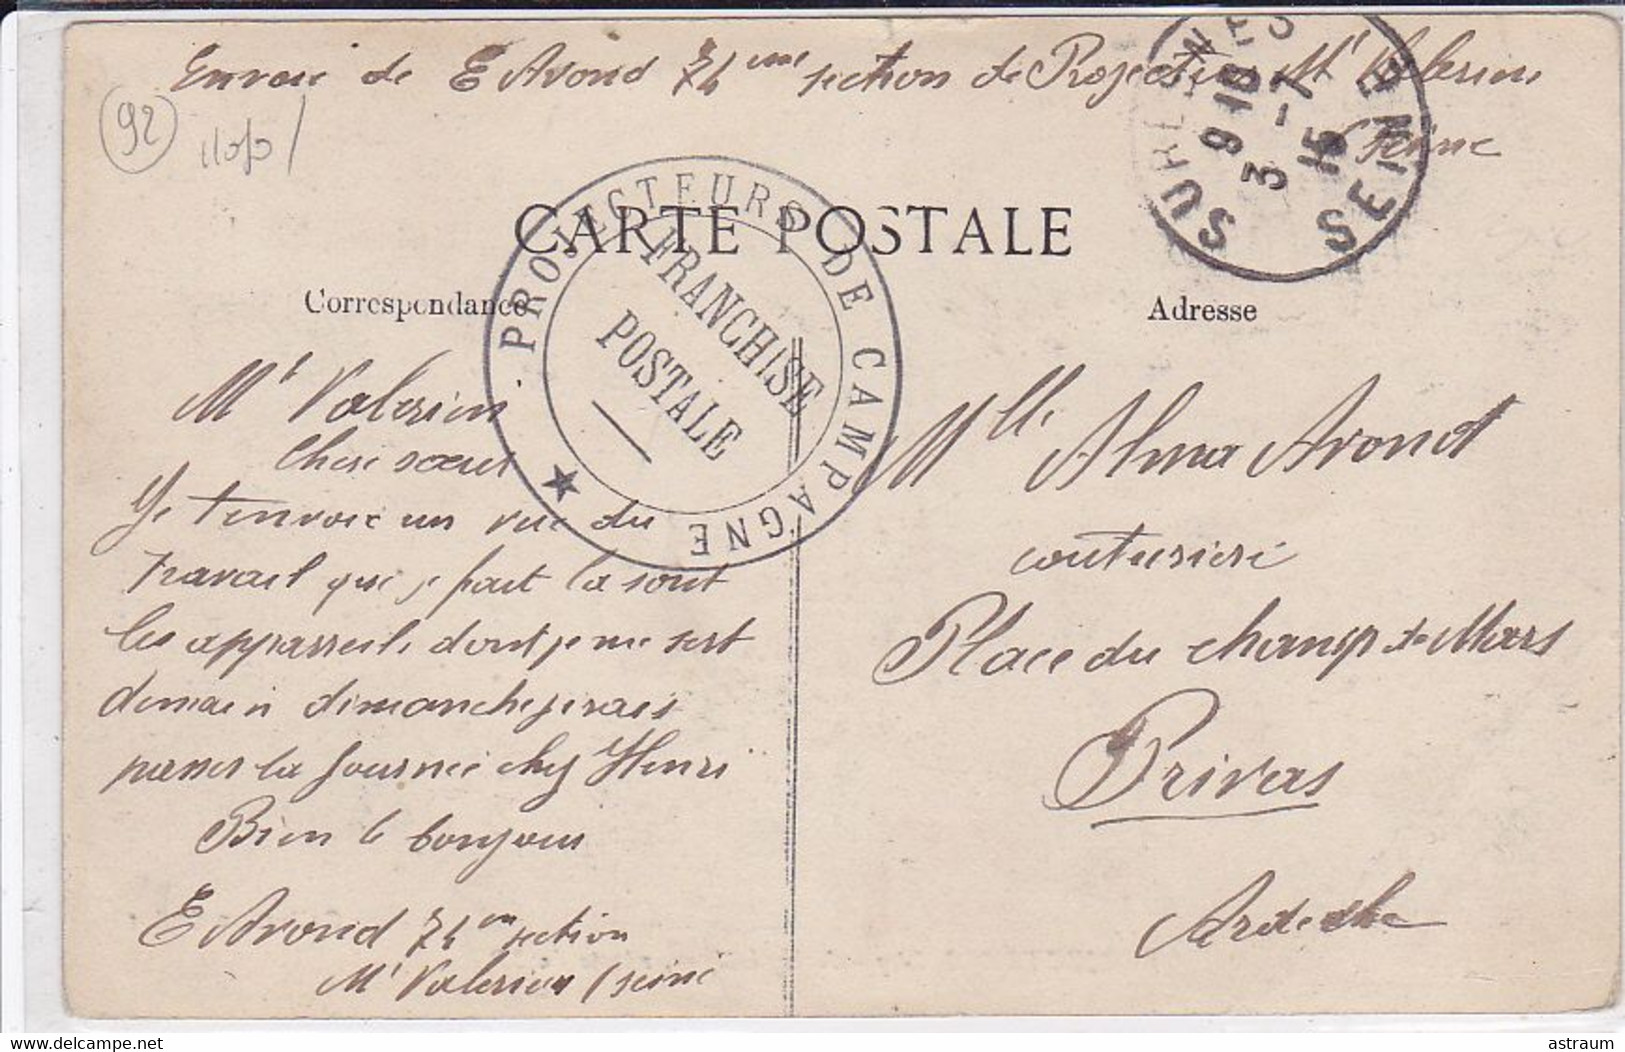 Envoie de E Avond 74eme section de Projecteur Mt Valerien
Seine
92
SURESNES
9 10
3 -7
15
SEINE
PROJECTEURS DE CAMPAGNE
FRANCHISE
POSTALE
CARTE POSTALE
Correspondance
Adresse
Mt Valerien
Chere sœur
Je t'envoie un vue du
travail que je fait la sont
les apparreils dont je me sert
demain dimanche je vais
passer la journée chez Henri
Bien le bonjour
E Avond 74em section
Mt Valerien (seine
Mlle Alma Avond
couturiere
Place du champ de Mars
Privas
Ardeche
astraum